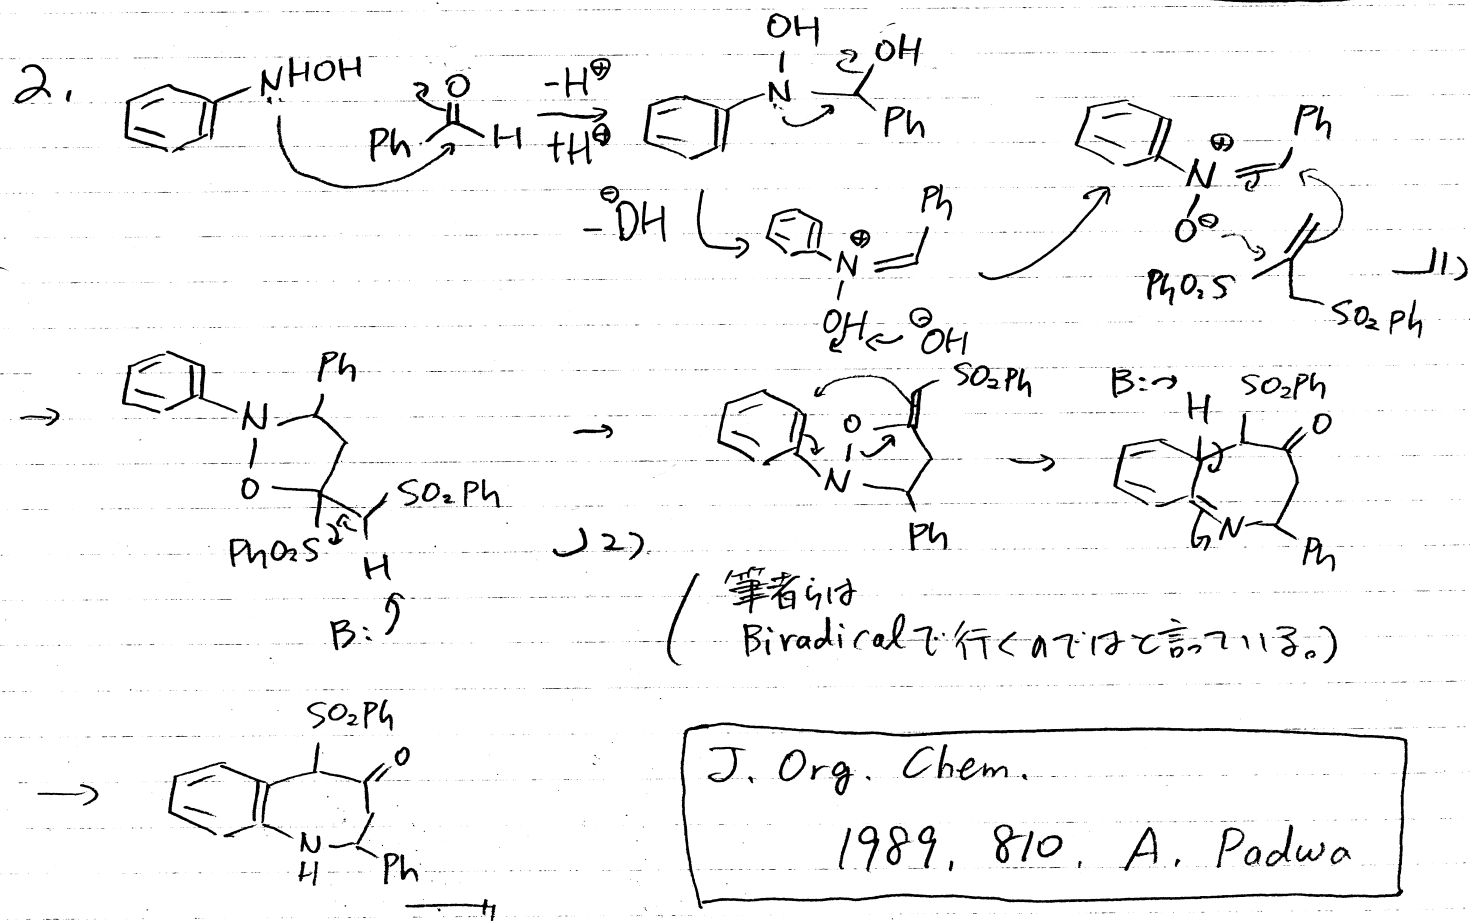 2.
NHOH
O
Ph
H
-H⊕
+H⊕
OH
N
OH
Ph
-⊖OH
N⊕
Ph
OH
⊖OH
N⊕
Ph
O⊖
PhO₂S
SO₂Ph
1)
→
N
Ph
O
PhO₂S
SO₂Ph
H
B:
2)
→
O
N
SO₂Ph
Ph
→
B:
H
SO₂Ph
O
N
Ph
(筆者らは
Biradicalで行くのではと言っている。)
→
SO₂Ph
O
N
H
Ph
J. Org. Chem.
1989, 810, A. Padwa